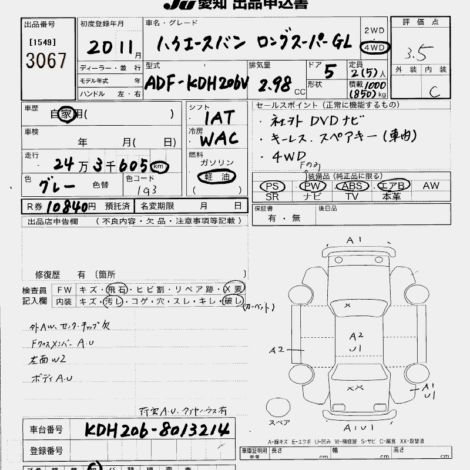 JU 愛知 出品申込書
出品番号 初度登録年月 車名・グレード 2WD 評価点
[1549] 2011月 ハイエースバン ロングスーパーGL 4WD 3.5
3067
ディーラー・並行 型式 排気量 ドア 定員 外装 内装
モデル年式 年 ADF-KDH206V 2.98 5 2(5)人 C
ハンドル 左・右 CC 形状 積載 1000(850)kg
車歴 シフト セールスポイント(正常に機能するもの)
自家用( ) IAT ・社外 DVDナビ
車検 冷房 ・キーレス、スペアキー(車内)
年 月( 月) WAC ・4WD
走行 燃料
24万3千605 km ガソリン
色 グレー 色替 色コード 193 軽油 装備品(純正品に限る)
PS PW ABS エアB AW
SR ナビ TV 本革
R券 10840円 預託済 名変期限 月 日
保証書 後日品
出品店申告欄 (不良内容・欠品・注意事項等記載) 有・無
修復歴 有( )箇所
検査員記入欄 FW キズ・飛石・ヒビ割・リペア跡・X要
内装 キズ・汚し・コゲ・穴・スレ・キレ・破し (カーペット)
外AW、センターキャップ欠
Fクロスメンバー A.U
左面W2
ボディA.U
荷室A.U.
車台番号 KDH206-8013214
登録番号
A1
X
A2
U1
A2
A1
U1
XX
A1U1
スペア
A・線キズ E・エクボ U・凹み W・補修跡 S・サビ C・腐食 XX・取替済
車庫証明用 長さ cm 幅 cm 高さ cm